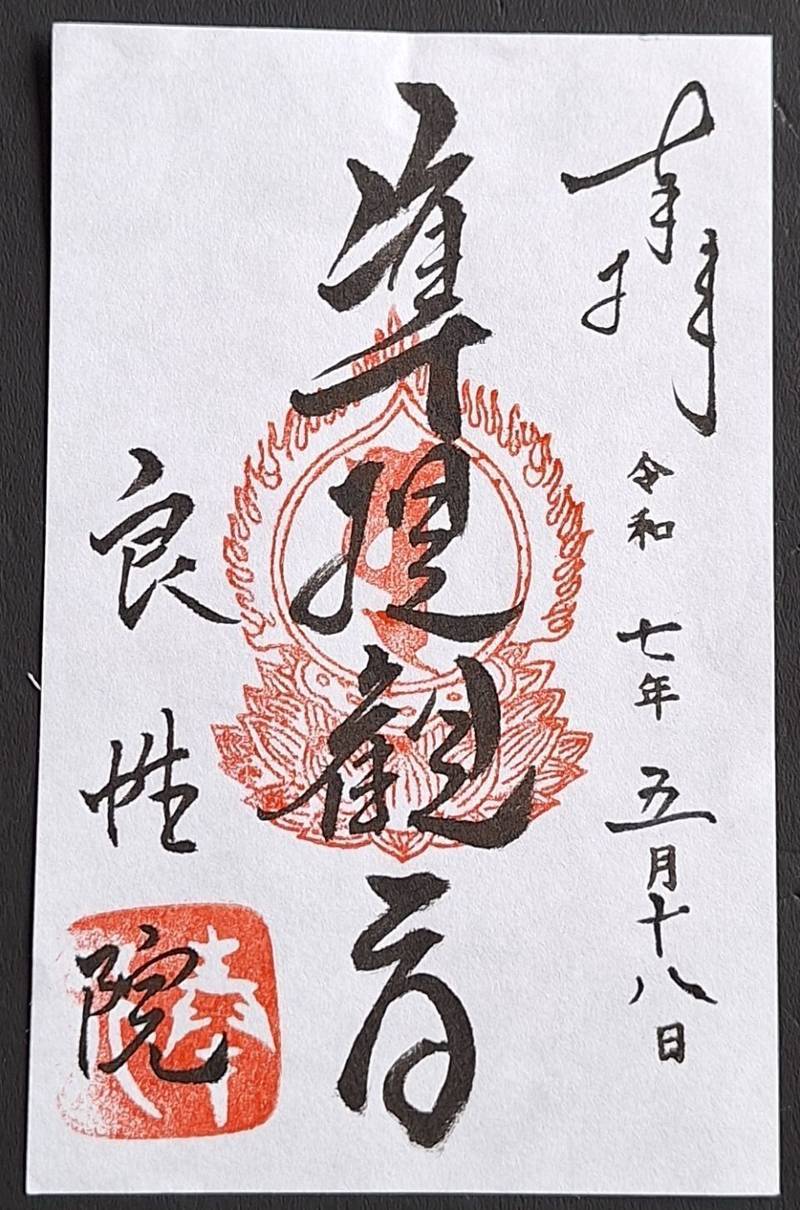 奉拝
令和 七年 五月十八日
准提観音
良性院